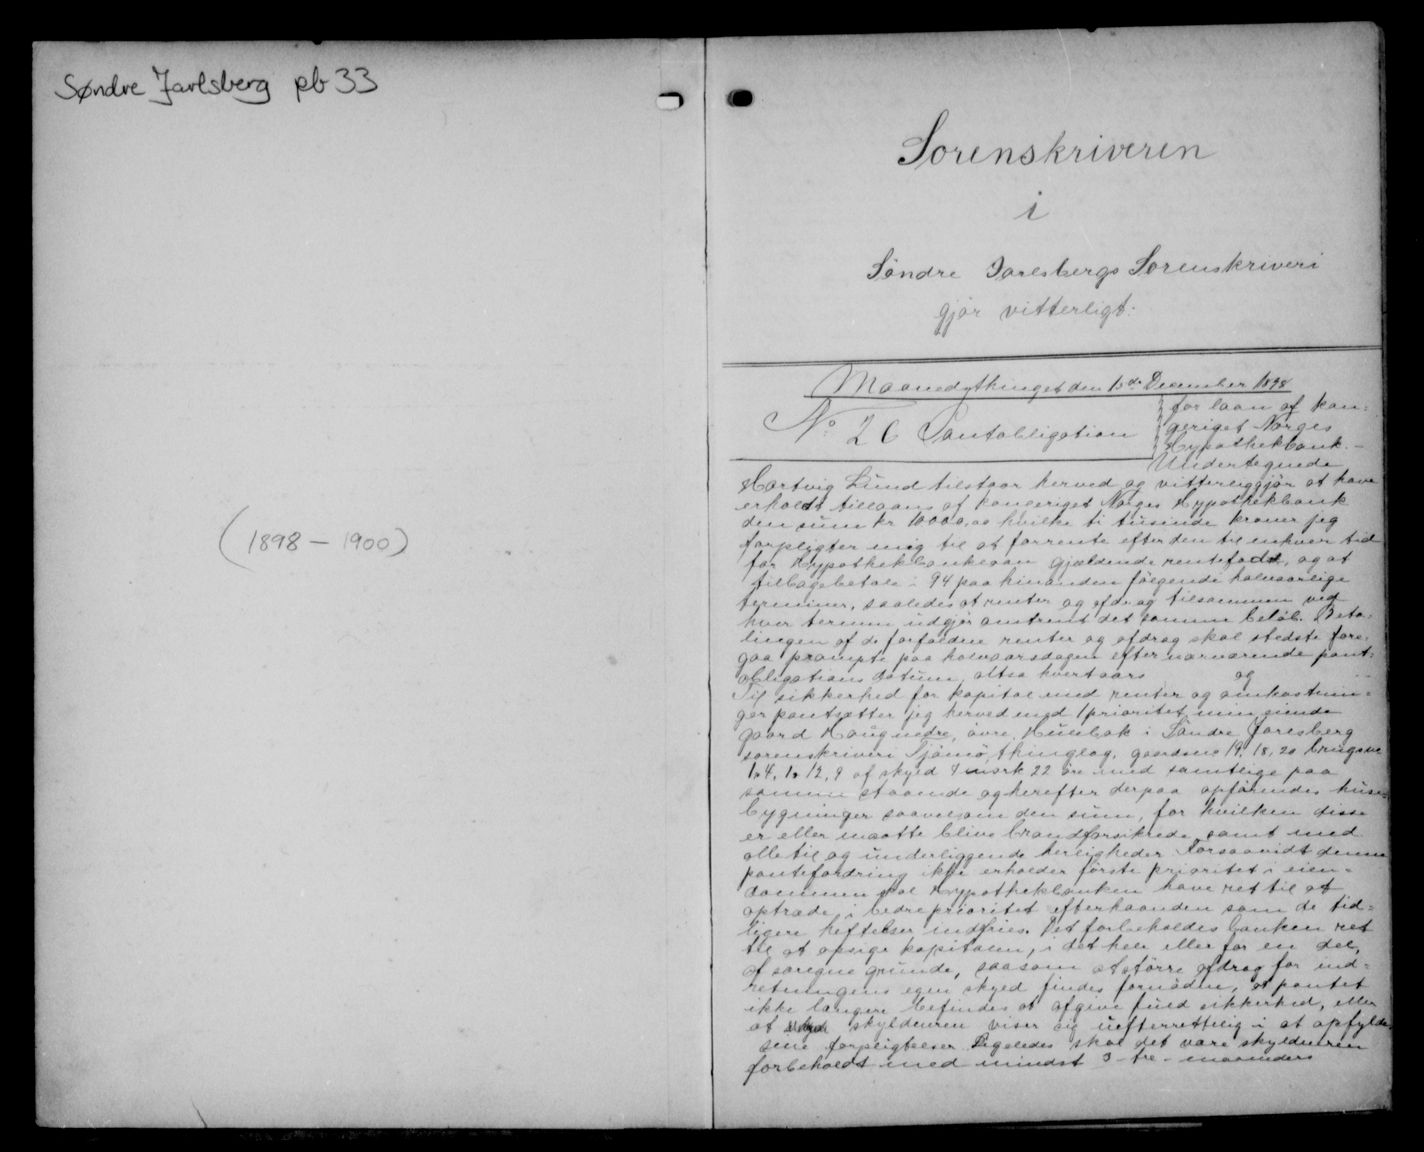 Søndre Jarlsberg pb 33
(1898 – 1900)
Sorenskriveren
i
Søndre Jarlsbergs Sorenskriveri
gjør vitterligt:
Maanedsthinget den 15de December 1898
No 26 Pantobligation
for laan af kon=
geriget Norges
Hypothekbank.–
Undertegnede
Hartvig Lund tilstaar herved og vitterliggjør at have
erholdt tillaans af kongeriget Norges Hypothekbank
den sum kr 10000,00 hvilke ti tusinde kroner jeg
forpligter mig til at forrente efter den til enhver tid
for Hypothekbanklaan gjældende rentefod, og at
tilbagebetale i 94 paa hinanden følgende halvaarlige
terminer, saaledes at renter og afdrag tilsammen ved
hver termin udgjør omtrent det samme beløb. Beta-
lingen af de forfaldne renter og afdrag skal stedste fore-
gaa prompte paa halvaarsdagen efter nærværende pant=
obligations datum, altsa hvertaars og
Til sikkerhed for kapital med renter og omkostnin=
ger pantsætter jeg herved med 1 prioritet min eiende
gaard Haug nedre, øvre, i Søndre Jarlsberg
sorenskriveri Tjømø, thinglag, gaardsno 19, 18, 20 brugsno
af skyld 4 mark 22 øre med samtlige paa
samme staaende og herefter derpaa opførendes huse=
bygninger saavelsom den sum, for hvilken disse
er eller maatte blive brandforsikrede, samt med
alle til og underliggende herligheder. Forsaavidt denne
pantefordring ikke erholder første prioritet i eien=
dommen skal Hypothekbanken have ret til at
optræde i bedre prioritet efterhaanden som de tid=
ligere heftelser indfries. Det forbeholdes banken ret
til at opsige kapitalen, i det hele eller for en del,
af særegne grunde, saasom at større afdrag for ind=
retningens egen skyld findes fornøden, at pantet
ikke længere befindes at afgive fuld sikkerhed, eller
at skyldneren viser sig uefterrettelig i at opfylde
sine forpligtelser. Ligeledes skal det være skyldneren
forbeholdt med mindst 3 – tre – maaneders